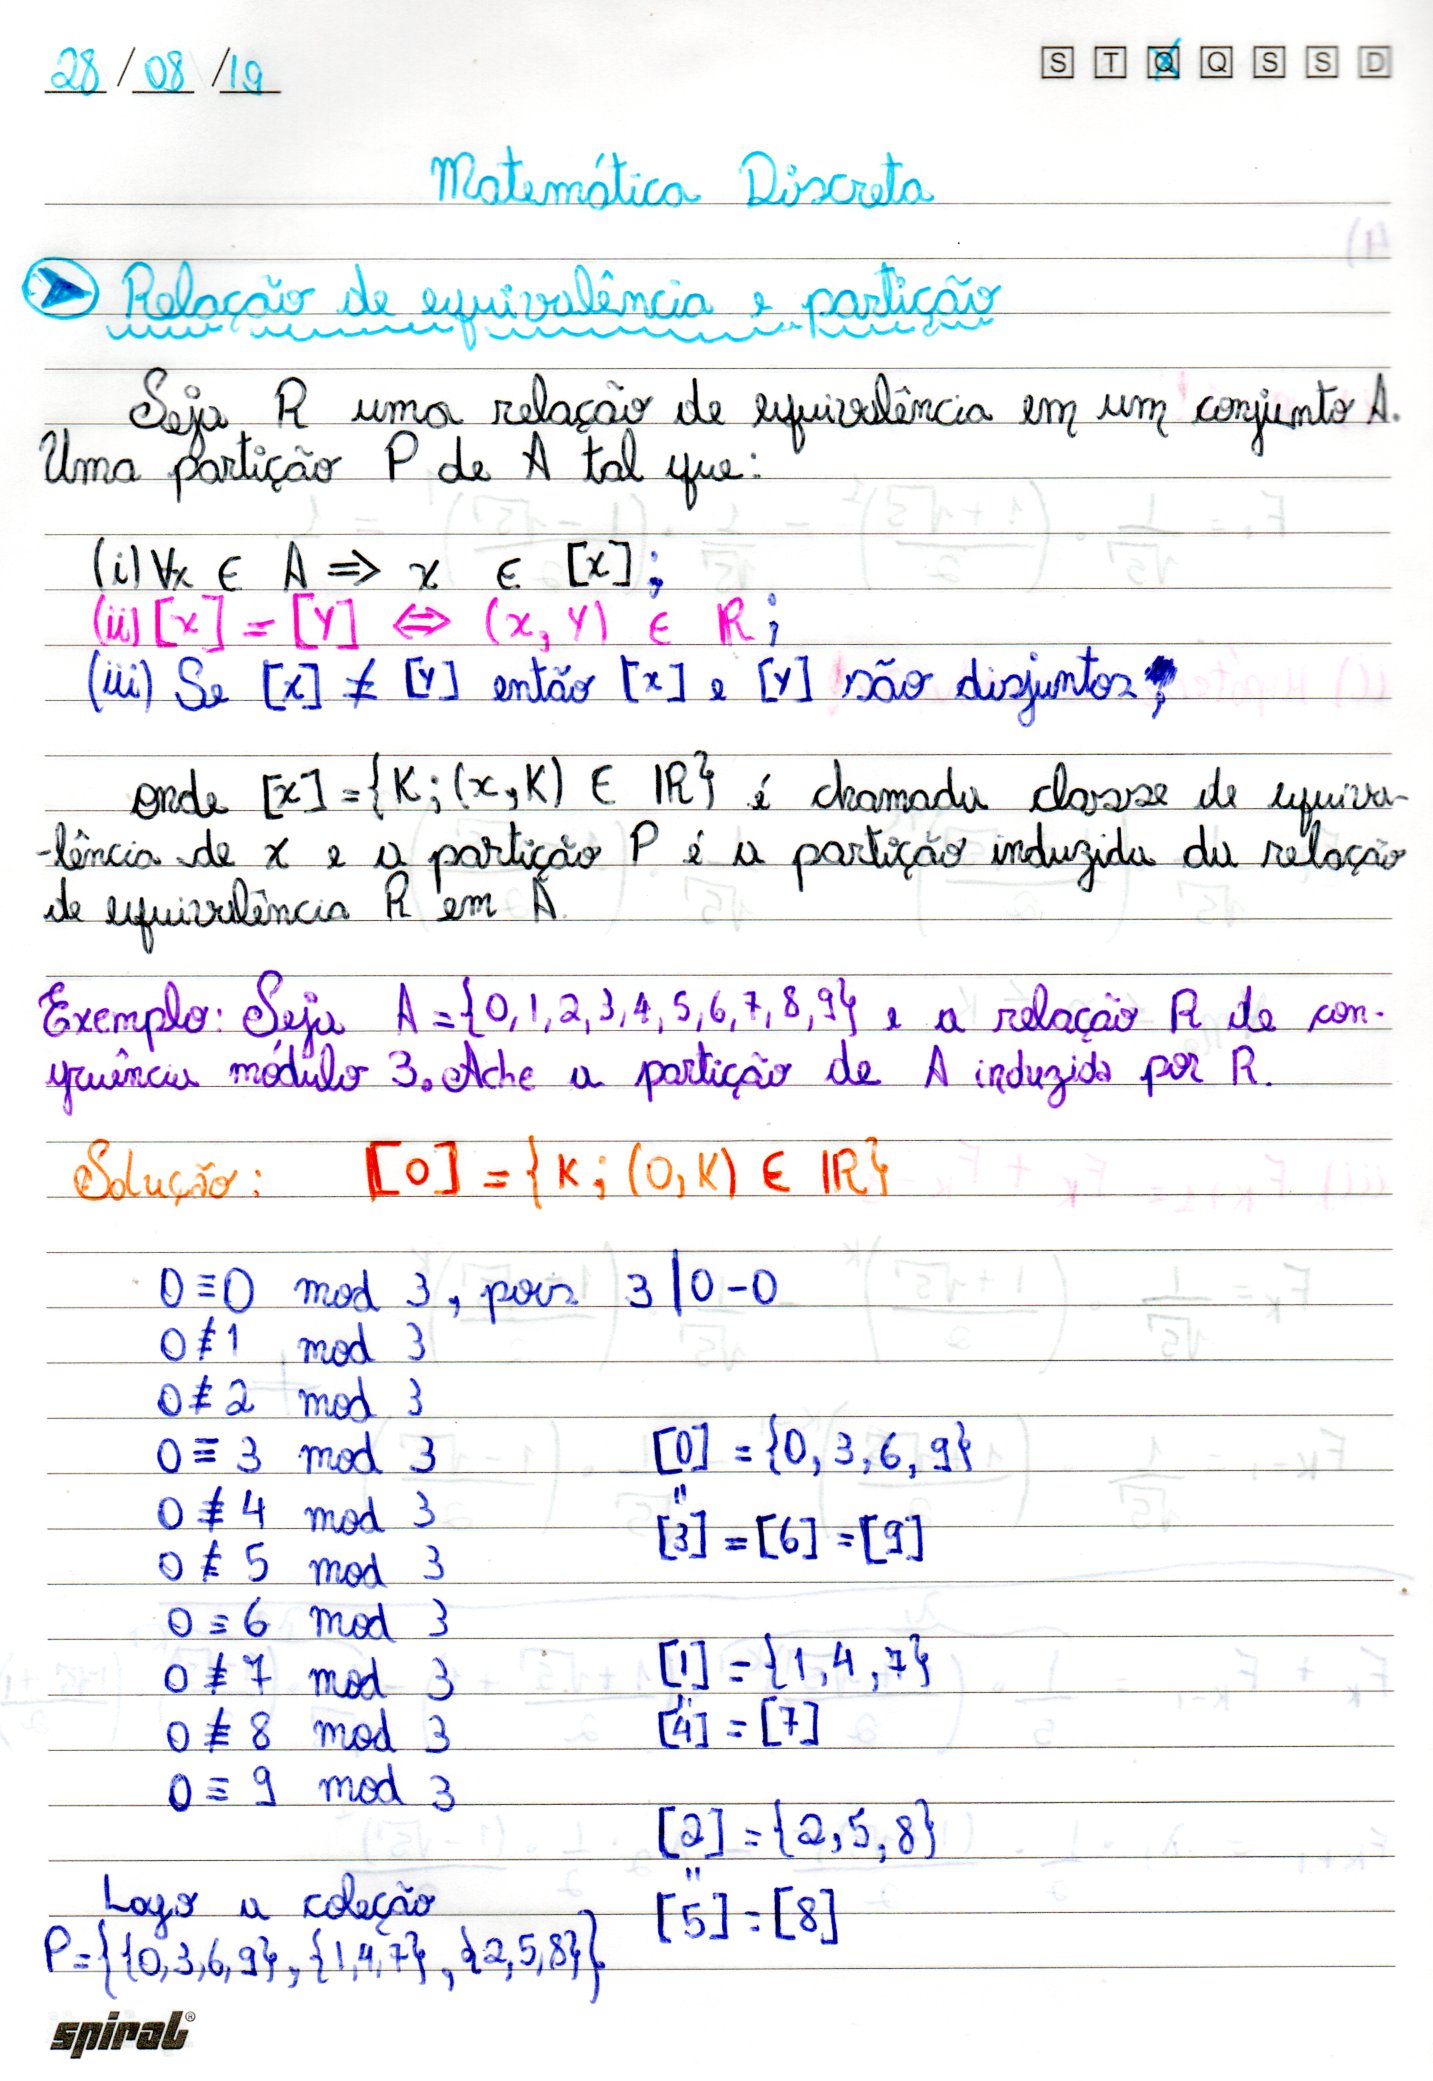 28/08/19 S T Q Q S S D
Matemática Discreta
Relação de equivalência e partição
Seja R uma relação de equivalência em um conjunto A.
Uma partição P de A tal que:
(i) ∀x ∈ A ⇒ x ∈ [x];
(ii) [x] = [y] ⇔ (x, y) ∈ R;
(iii) Se [x] ≠ [y] então [x] e [y] são disjuntos;
onde [x] = {K; (x, K) ∈ R} é chamada classe de equiva-
-lência de x e a partição P é a partição induzida da relação
de equivalência R em A.
Exemplo: Seja A = {0, 1, 2, 3, 4, 5, 6, 7, 8, 9} e a relação R de con-
gruência módulo 3. Ache a partição de A induzida por R.
Solução: [0] = {K; (0, K) ∈ R}
0 ≡ 0 mod 3, pois 3 | 0 - 0
0 ≢ 1 mod 3
0 ≢ 2 mod 3
0 ≡ 3 mod 3
0 ≢ 4 mod 3
0 ≢ 5 mod 3
0 ≡ 6 mod 3
0 ≢ 7 mod 3
0 ≢ 8 mod 3
0 ≡ 9 mod 3
[0] = {0, 3, 6, 9}
"
[3] = [6] = [9]
[1] = {1, 4, 7}
"
[4] = [7]
[2] = {2, 5, 8}
"
[5] = [8]
Logo a coleção
P = {{0, 3, 6, 9}, {1, 4, 7}, {2, 5, 8}}
spiral®